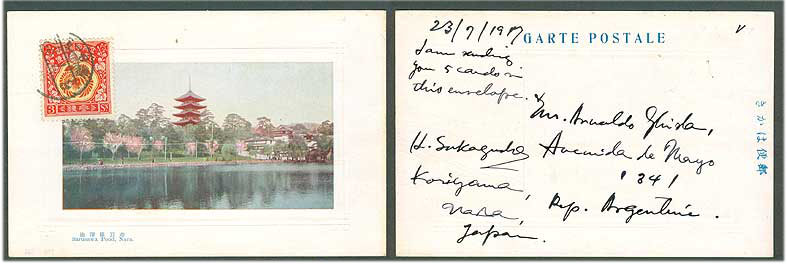 3 SN
池澤猿の
Sarusawa Pond, Nara.
23/7/1917
CARTE POSTALE
I am sending
you 5 cards in
this envelope.
Mr. Arnaldo Ghida,
H. Sakaguchi
Avenida de Mayo
1341
Koriyama,
Rep. Argentine.
Nara,
Japan.
きかは便郵